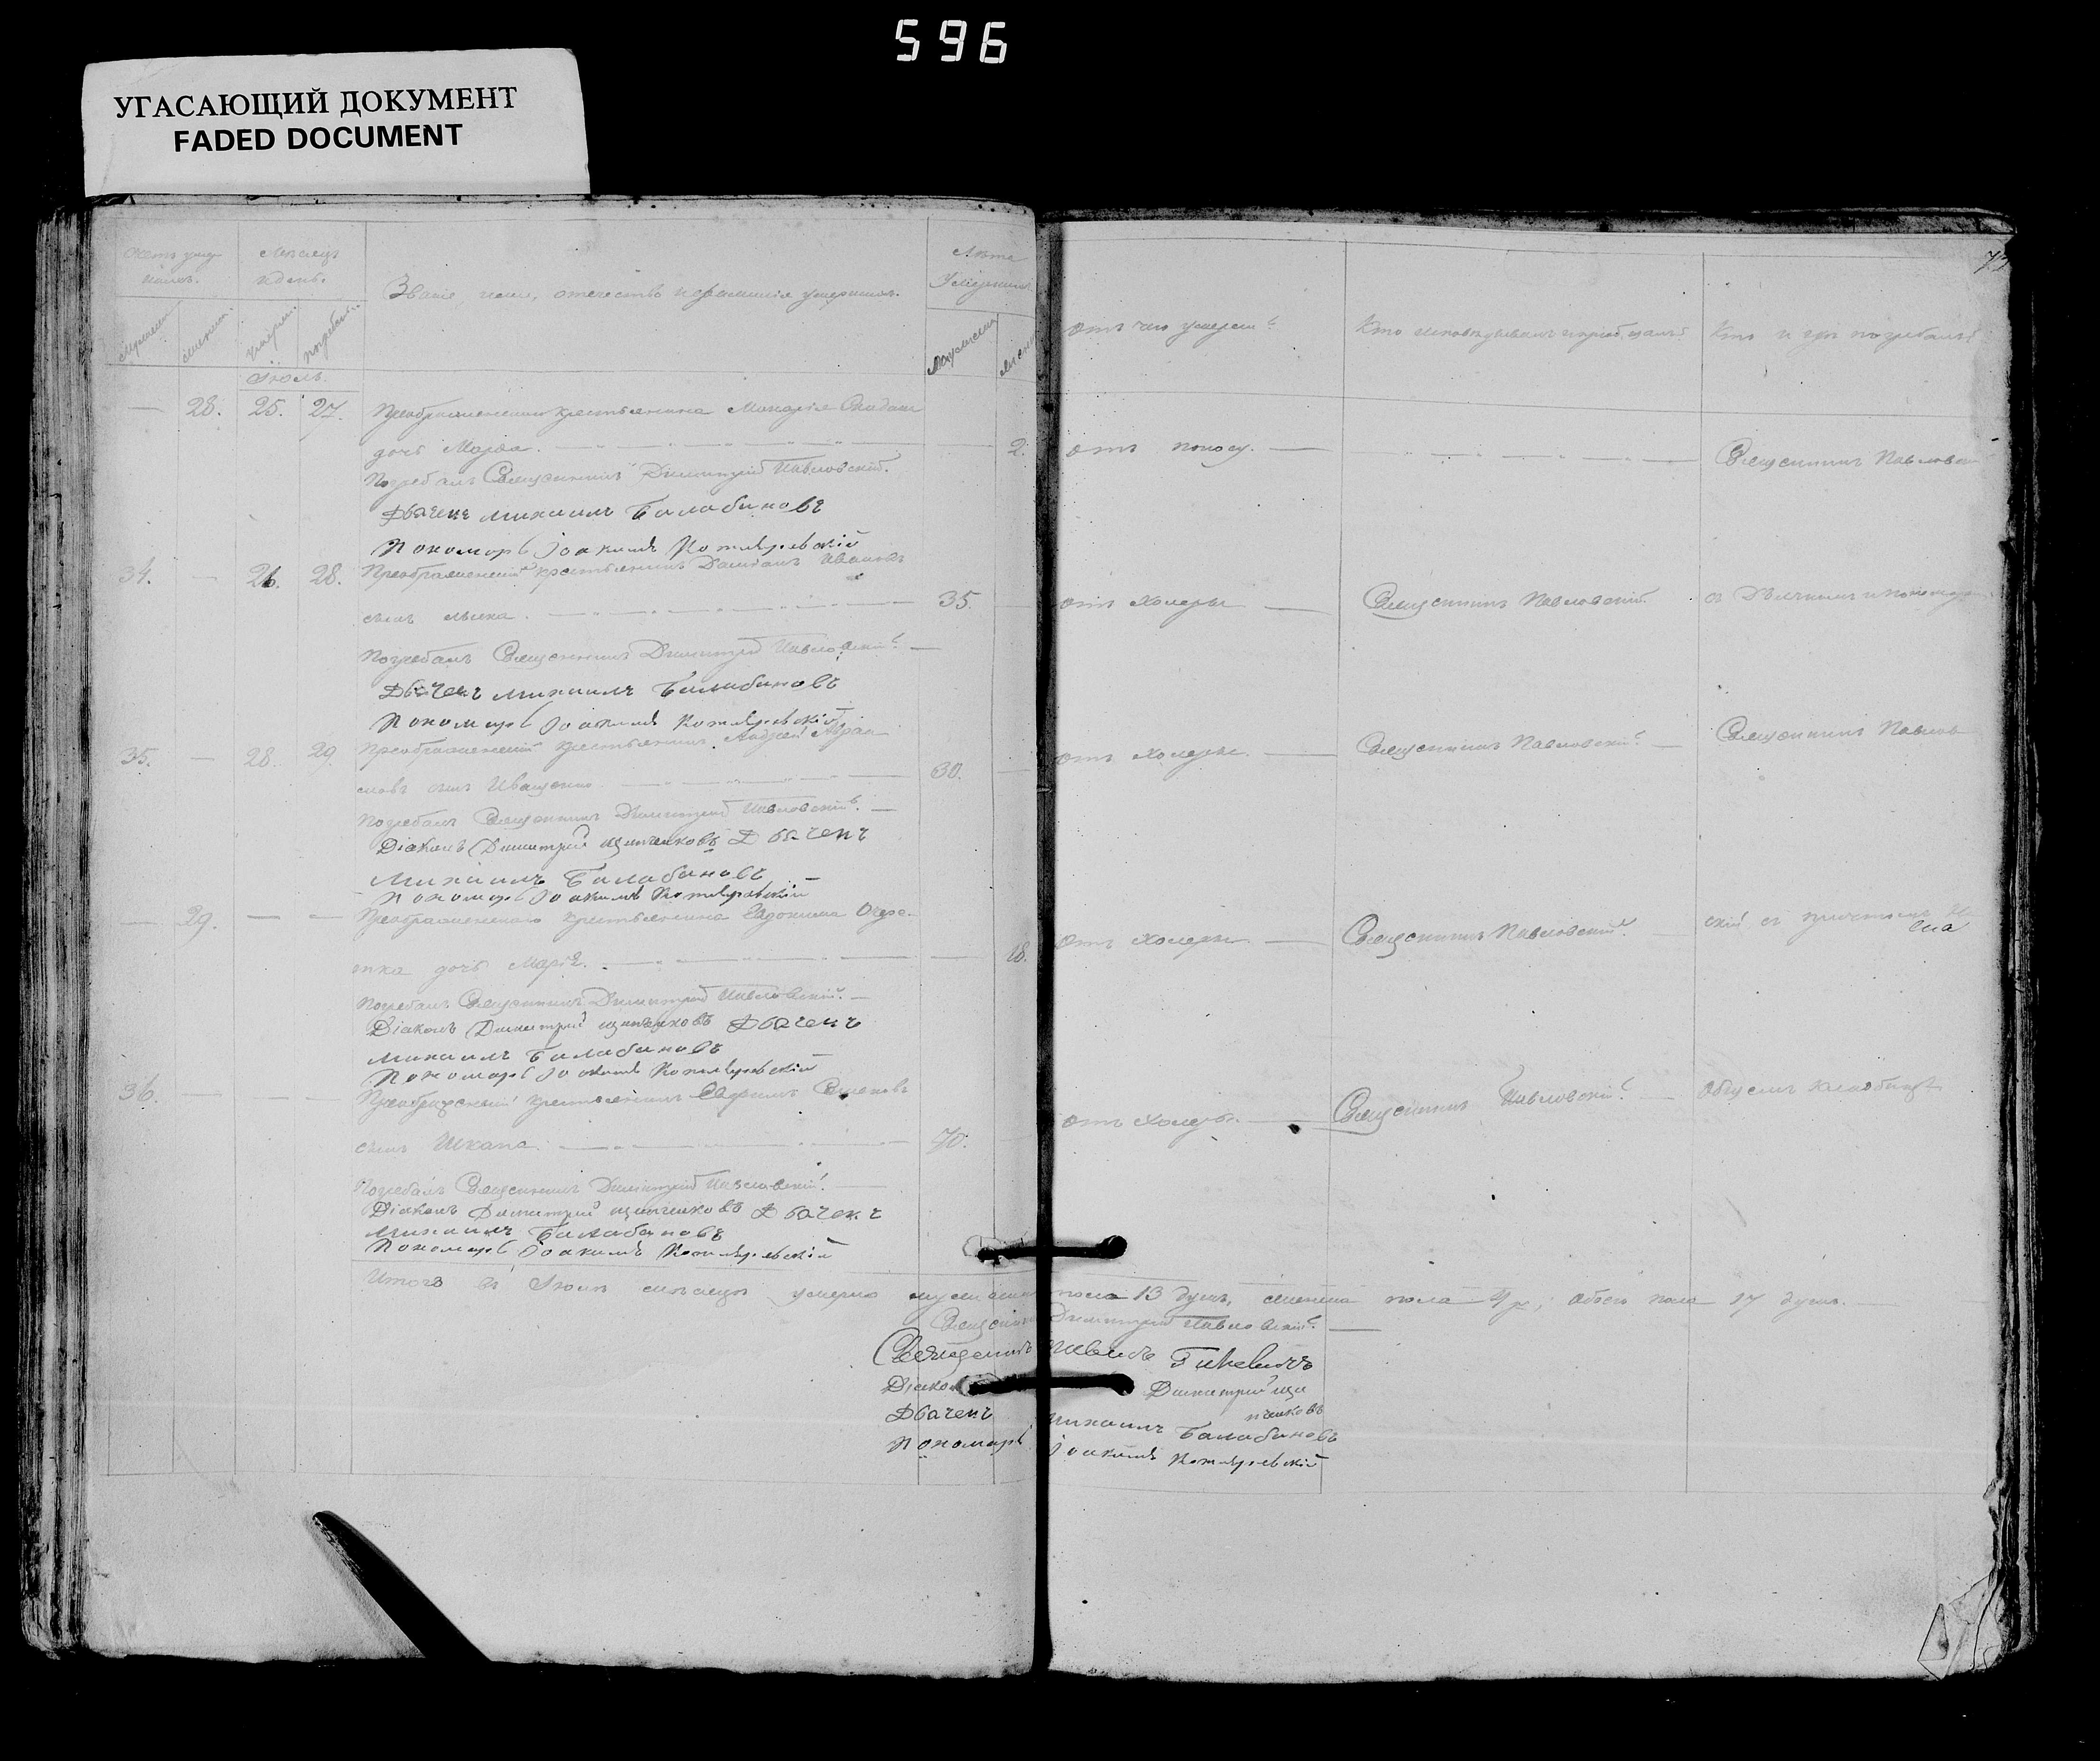 596
УГАСАЮЩИЙ ДОКУМЕНТ
FADED DOCUMENT
73
Счетъ умершихъ.
Мѣсяцъ и день.
Званіе, имя, отечество и фамилія умершихъ.
Лѣта Умершихъ
отъ чего умеръ?
Кто исповѣдывалъ и пріобщалъ?
Кто и гдѣ погребалъ?
Іюль.
— 28. 25. 27. Преображенскаго крестьянина
дочь Марѳа. 2. отъ поносу. — Священникъ Павловскій
Погребалъ Священникъ Димитрій Павловскій.
Дьячекъ Михаилъ Балабановъ
Пономарь Іоакимъ Котляревскій
34. — 26. 28. Преображенскій крестьянинъ Даміанъ Ивановъ
сынъ 35. отъ Холеры — Священникъ Павловскій. съ Дьячкомъ и пономаремъ
Погребалъ Священникъ Димитрій Павловскій. —
Дьячекъ Михаилъ Балабановъ
Пономарь Іоакимъ Котляревскій
35. — 28. 29. Преображенскій крестьянинъ Андрей Абра-
мовъ сынъ Иващенко 30. отъ Холеры. — Священникъ Павловскій. — Священникъ Павлов-
Погребалъ Священникъ Димитрій Павловскій. —
Діаконъ Димитрій Дьячекъ
Михаилъ Балабановъ
Пономарь Іоакимъ Котляревскій
— 29. — — Преображенскаго крестьянина Евдокима Очере-
тка дочь Марія. 18. отъ Холеры — Священникъ Павловскій. скій съ причтомъ
Погребалъ Священникъ Димитрій Павловскій. —
Діаконъ Димитрій Дьячекъ
Михаилъ Балабановъ
Пономарь Іоакимъ Котляревскій
36. — — — Преображенскій крестьянинъ Ефремъ
сынъ Шкапа. 70. — отъ Холеры. — Священникъ Павловскій. — общемъ кладбищѣ
Погребалъ Священникъ Димитрій Павловскій. —
Діаконъ Димитрій Дьячекъ
Михаилъ Балабановъ
Пономарь Іоакимъ Котляревскій
Итого въ Іюлѣ мѣсяцѣ умерло мужеска пола 13 душъ, женска пола 4, обоего пола 17 душъ. —
Священникъ Димитрій Павловскій. —
Священникъ
Діаконъ Димитрій
Дьячекъ Михаилъ Балабановъ
Пономарь Іоакимъ Котляревскій